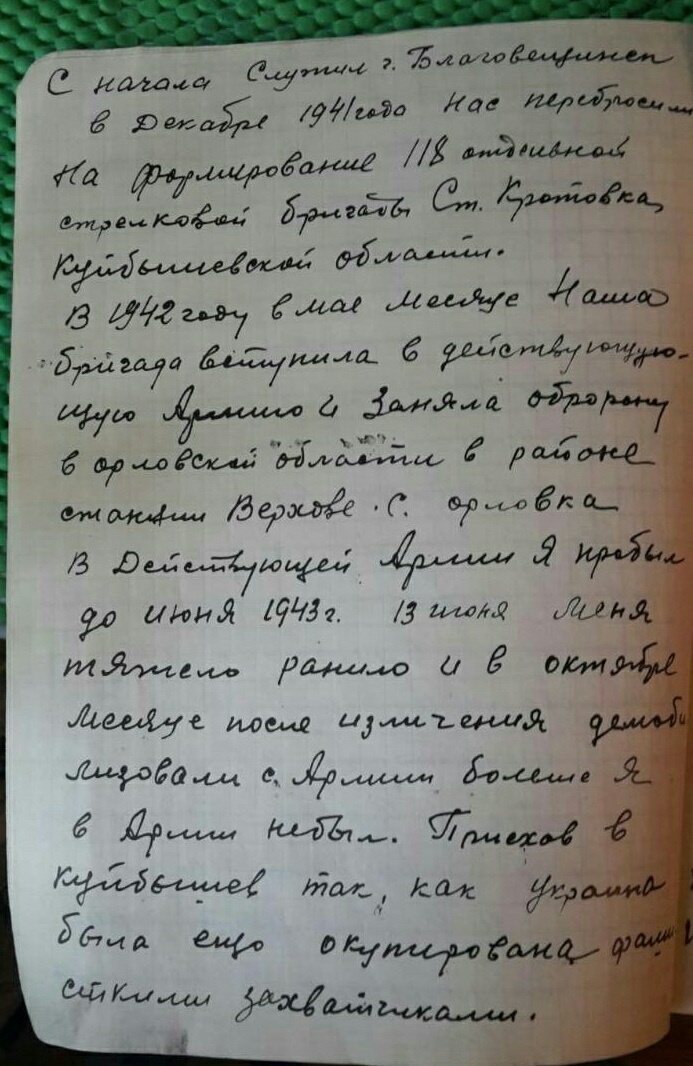 С начала Служил г. Благовещинск
в Декабре 1941 года Нас перебросили
На формирование 118 отдельной
стрелковой бригады Ст. Кротовка,
Куйбышевской области.
В 1942 году в мае месяце Наша
бригада вступила в действующую-
щую Армию и Заняла обророну
в орловской области в районе
станции Верховье. С. орловка
В Действующей Армии Я пробыл
до июня 1943 г. 13 июня меня
тяжело ранило и в октябре
месяце после изличения демоби
лизовали с Армии больше я
в Армии небыл. Приехов в
Куйбышев так, как Украина
была ещо окупирована фаши
сткими захватчиками.